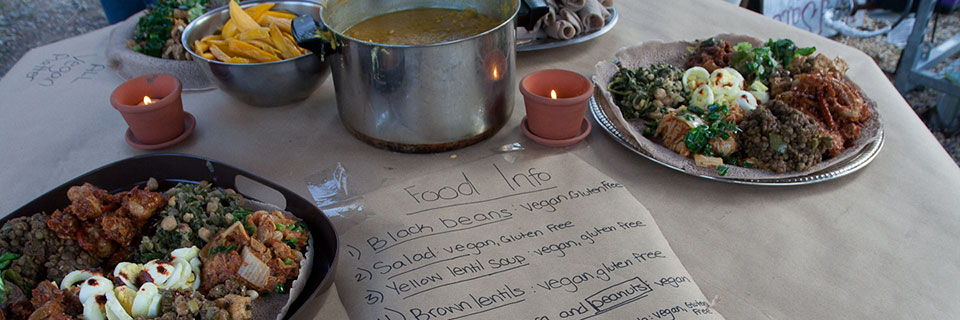 Food Info
1) Black beans: Vegan, Gluten Free
2) Salad vegan, Gluten free
3) Yellow lentil soup: vegan, gluten free
Brown lentils: vegan, gluten free
and peanuts: vegan
vegan, gluten
ALL
Vegan
Platter